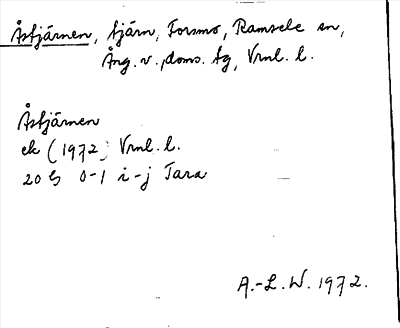 Åstjärnen, tjärn, Forsmo, Ramsele sn,
Ång. v. doms. tg, Vrml. l.
Åstjärnen
ek (1972) Vrml. l.
20 G 0-1 i-j Tara
A.-L. W. 1972.